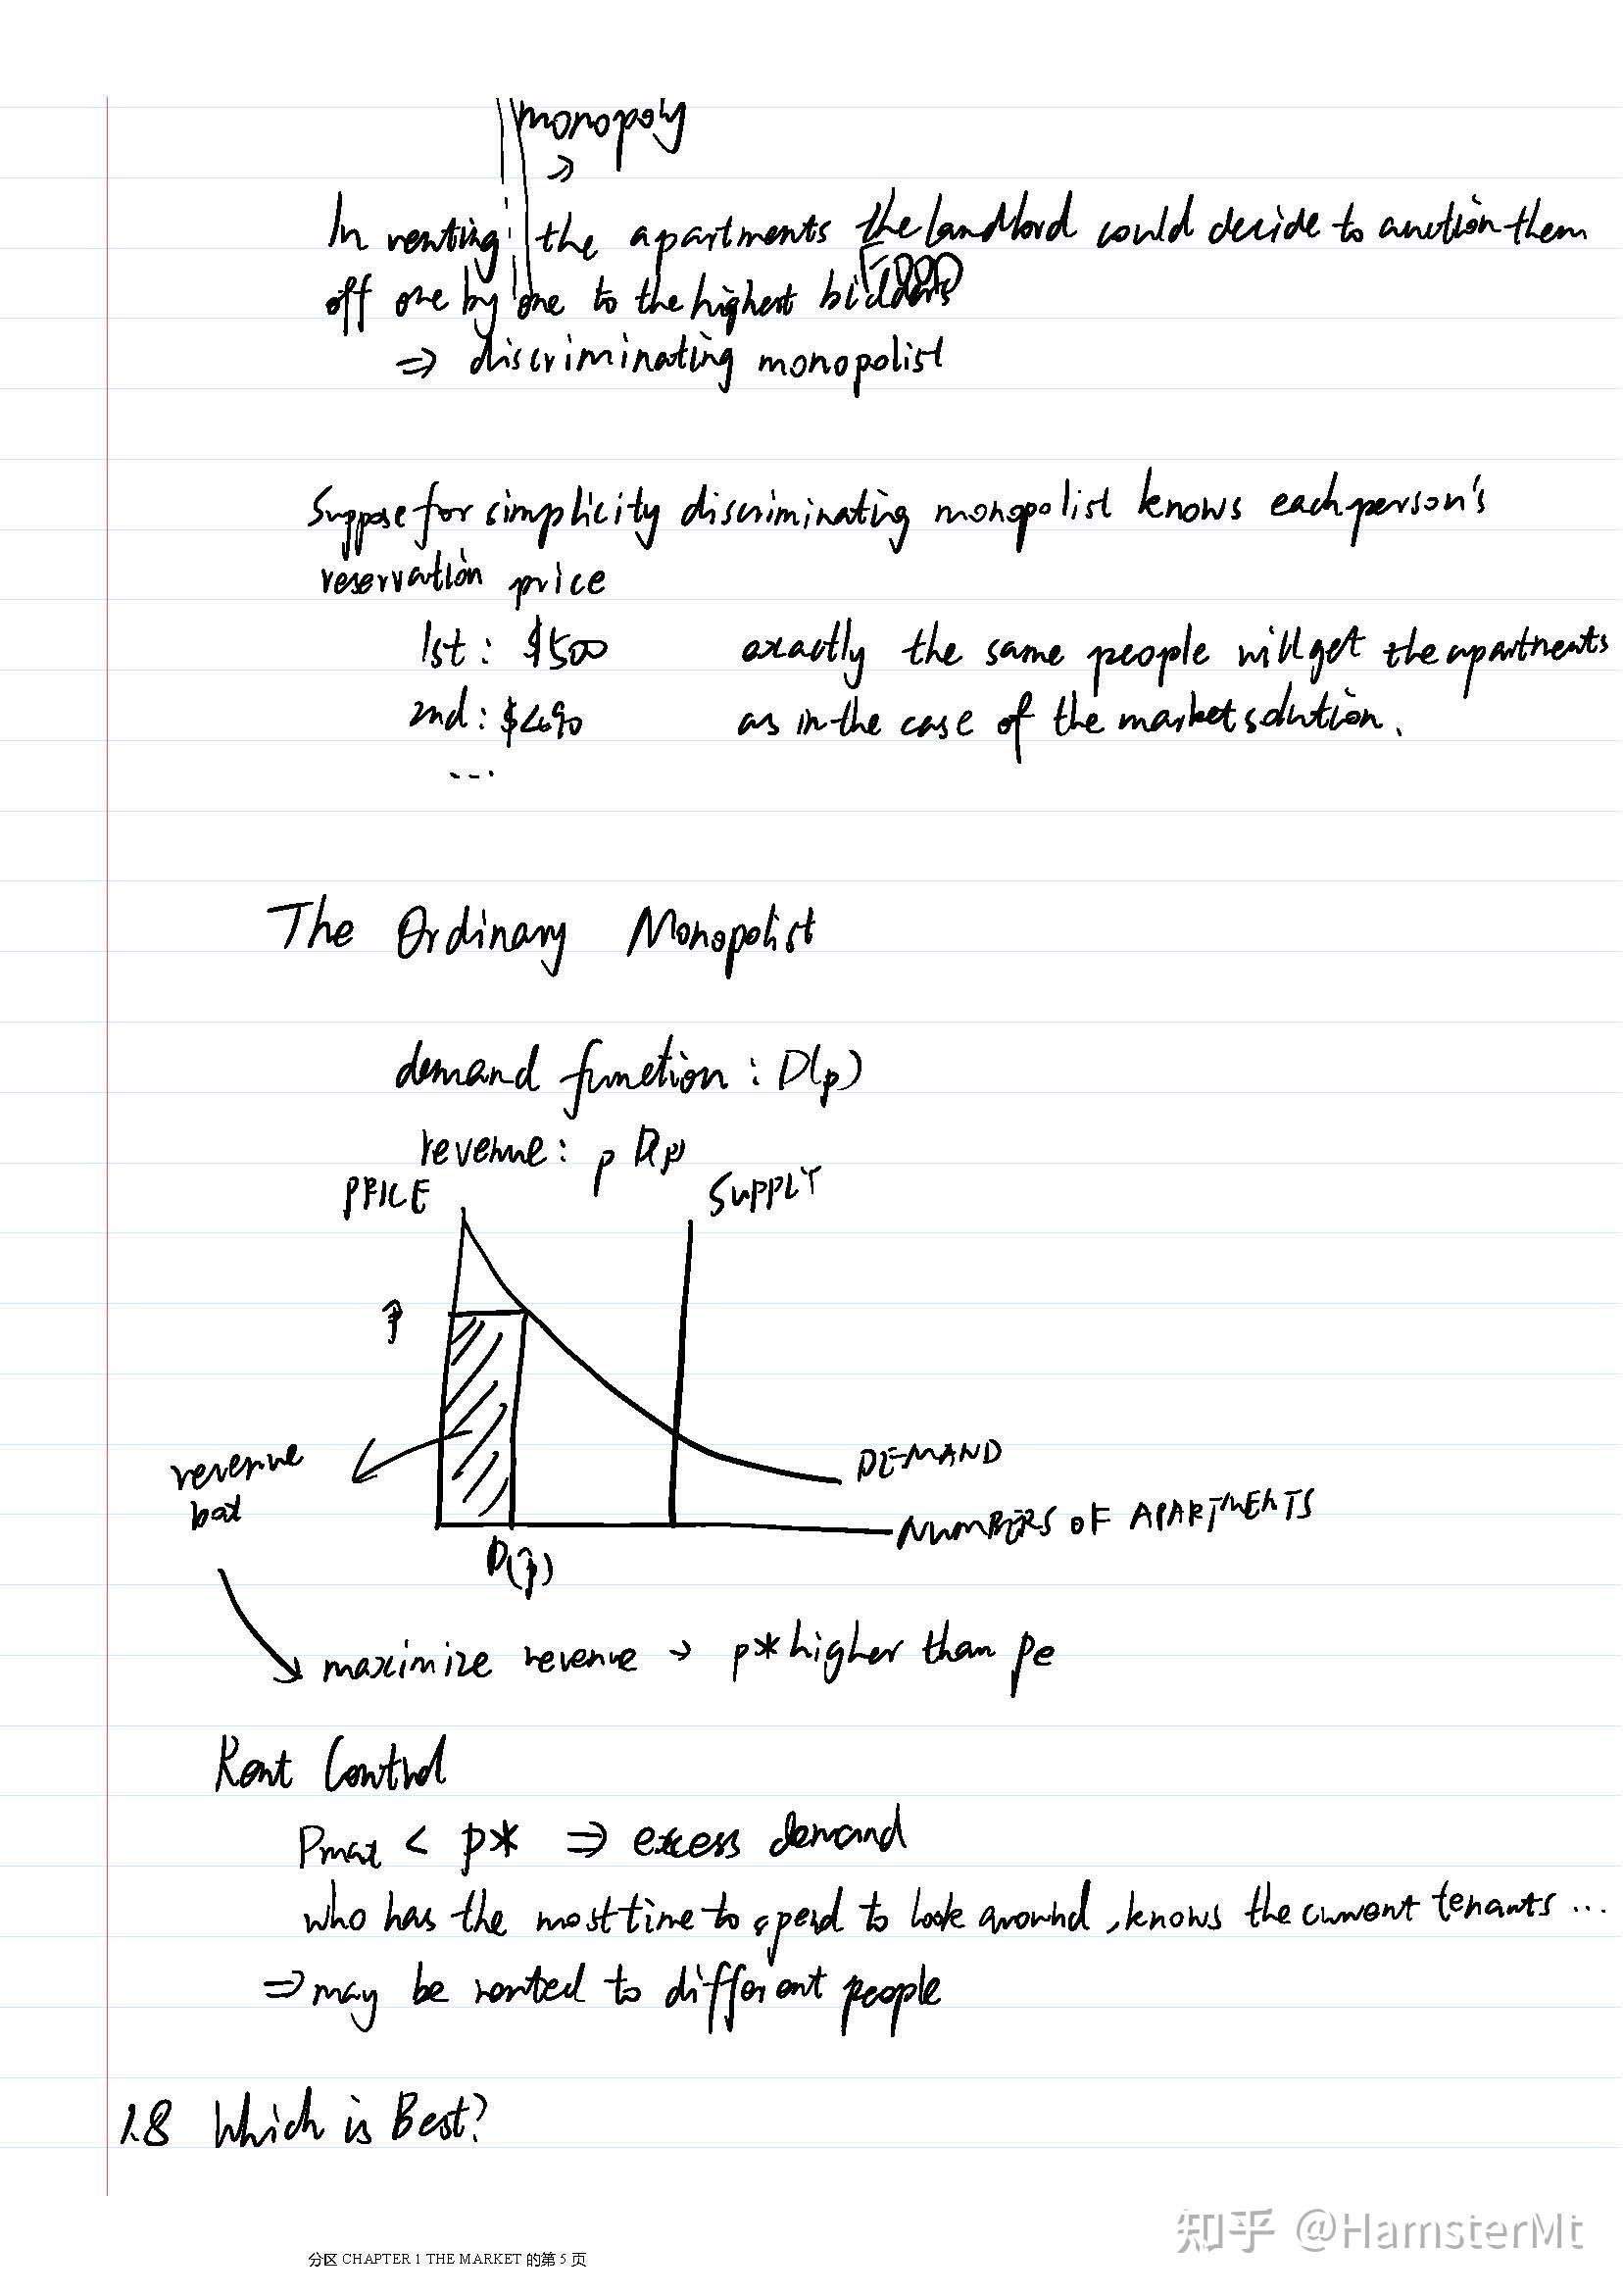 monopoly
⇒
In renting the apartments the landlord could decide to auction them
off one by one to the highest bidders
⇒ discriminating monopolist
Suppose for simplicity discriminating monopolist knows each person's
reservation price
1st: $500 exactly the same people will get the apartments
2nd: $490 as in the case of the market solution.
...
The Ordinary Monopolist
demand function: D(p)
revenue: p D(p)
PRICE
SUPPLY
p̂
revenue
box
DEMAND
NUMBERS OF APARTMENTS
D(p̂)
maximize revenue → p* higher than pe
Rent Control
Pmax < p* ⇒ excess demand
who has the most time to spend to look around, knows the current tenants ...
⇒ may be rented to different people
1.8 Which is Best?
知乎 @HamsterMt
分区 CHAPTER 1 THE MARKET 的第 5 页